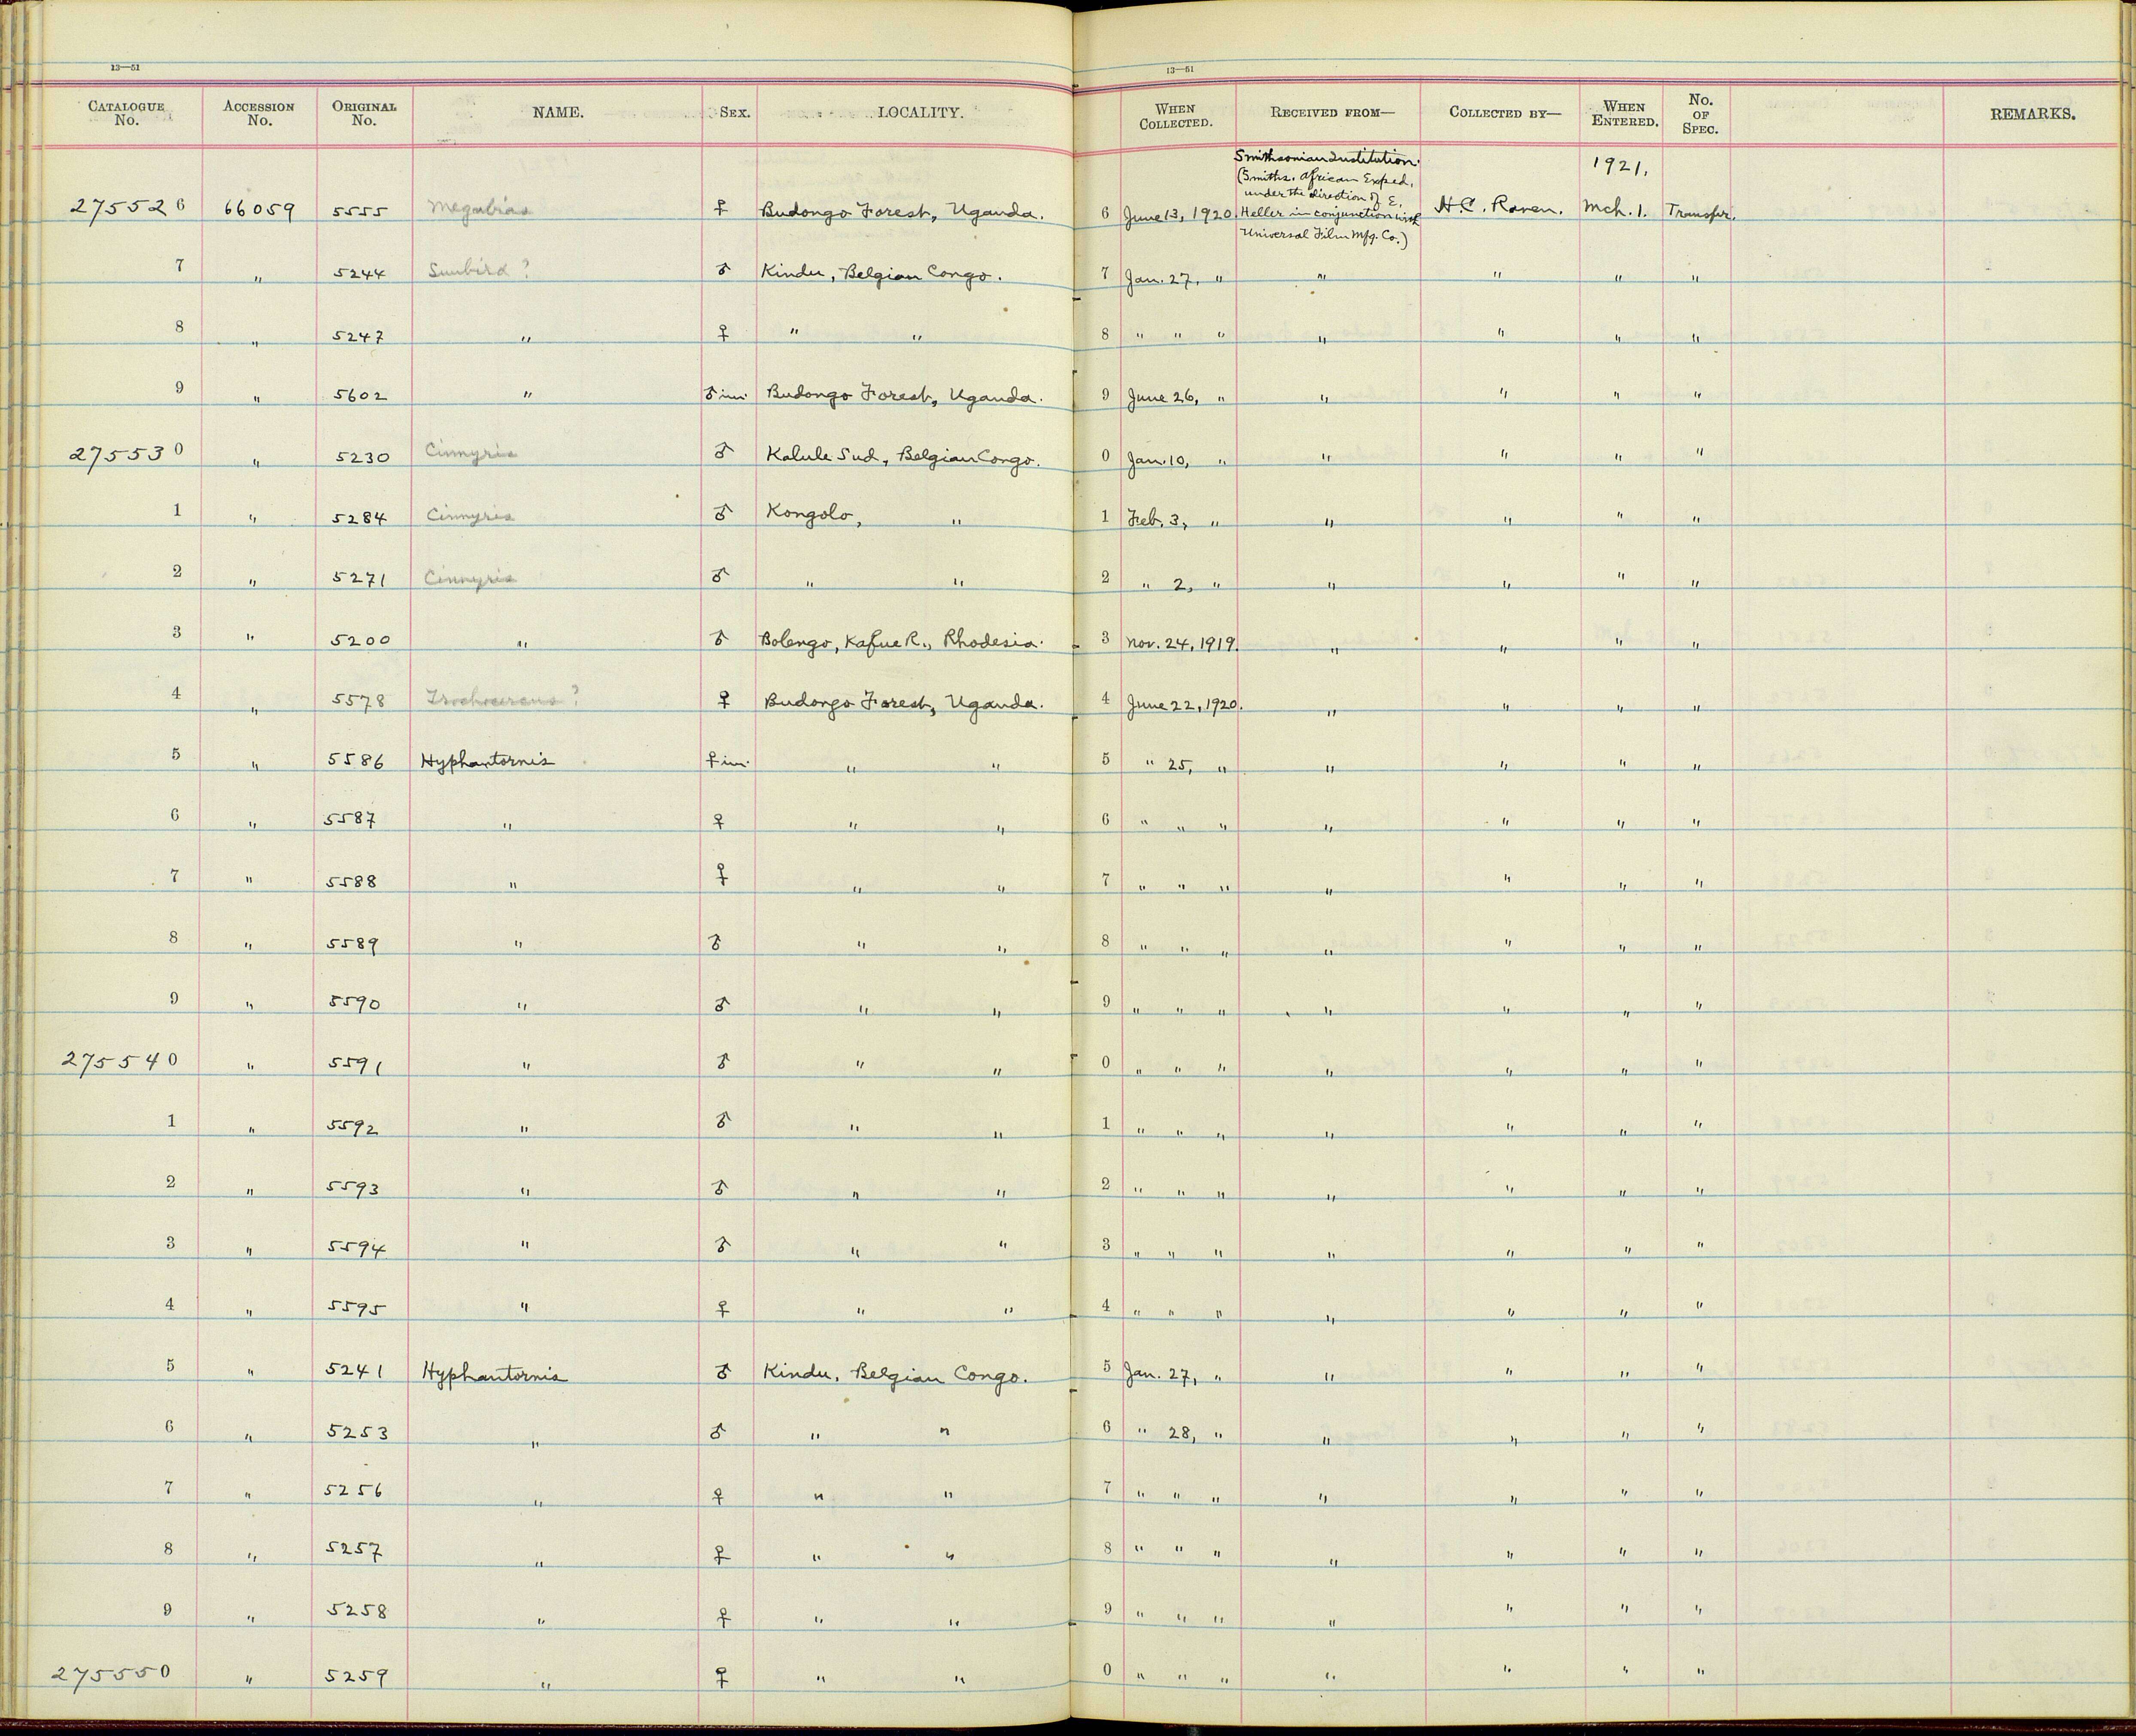 13—51
13—51
CATALOGUE No. ACCESSION No. ORIGINAL No. NAME. SEX. LOCALITY. WHEN COLLECTED. RECEIVED FROM— COLLECTED BY— WHEN ENTERED. No. OF SPEC. REMARKS.
Smithsonian Institution.
(Smiths. African Exped. 1921.
under the direction of E.
275526 66059 5555 Megabias ♀ Budongo Forest, Uganda. 6 June 13, 1920. Heller in conjunction with H.C. Raven. Mch. 1. Transfer.
Universal Film Mfg. Co.)
7 " 5244 Sunbird? ♂ Kindu, Belgian Congo. 7 Jan. 27, " " " " "
8 " 5247 " ♀ " " 8 " " " " " " "
9 " 5602 " ♂ im. Budongo Forest, Uganda. 9 June 26, " " " " "
275530 " 5230 Cinnyris ♂ Kalule Sud, Belgian Congo. 0 Jan. 10, " " " " "
1 " 5284 Cinnyris ♂ Kongolo, " 1 Feb. 3, " " " " "
2 " 5271 Cinnyris ♂ " " 2 " 2, " " " " "
3 " 5200 " ♂ Bolengo, Kafue R., Rhodesia. 3 Nov. 24, 1919. " " " "
4 " 5578 Trochocercus? ♀ Budongo Forest, Uganda. 4 June 22, 1920. " " " "
5 " 5586 Hyphantornis ♀ im. " " 5 " 25, " " " " "
6 " 5587 " ♀ " " 6 " " " " " " "
7 " 5588 " ♀ " " 7 " " " " " " "
8 " 5589 " ♂ " " 8 " " " " " " "
9 " 5590 " ♂ " " 9 " " " " " " "
275540 " 5591 " ♂ " " 0 " " " " " " "
1 " 5592 " ♂ " " 1 " " " " " " "
2 " 5593 " ♂ " " 2 " " " " " " "
3 " 5594 " ♂ " " 3 " " " " " " "
4 " 5595 " ♀ " " 4 " " " " " " "
5 " 5241 Hyphantornis ♂ Kindu, Belgian Congo. 5 Jan. 27, " " " " "
6 " 5253 " ♂ " " 6 " 28, " " " " "
7 " 5256 " ♀ " " 7 " " " " " " "
8 " 5257 " ♀ " " 8 " " " " " " "
9 " 5258 " ♀ " " 9 " " " " " " "
275550 " 5259 " ♀ " " 0 " " " " " " "